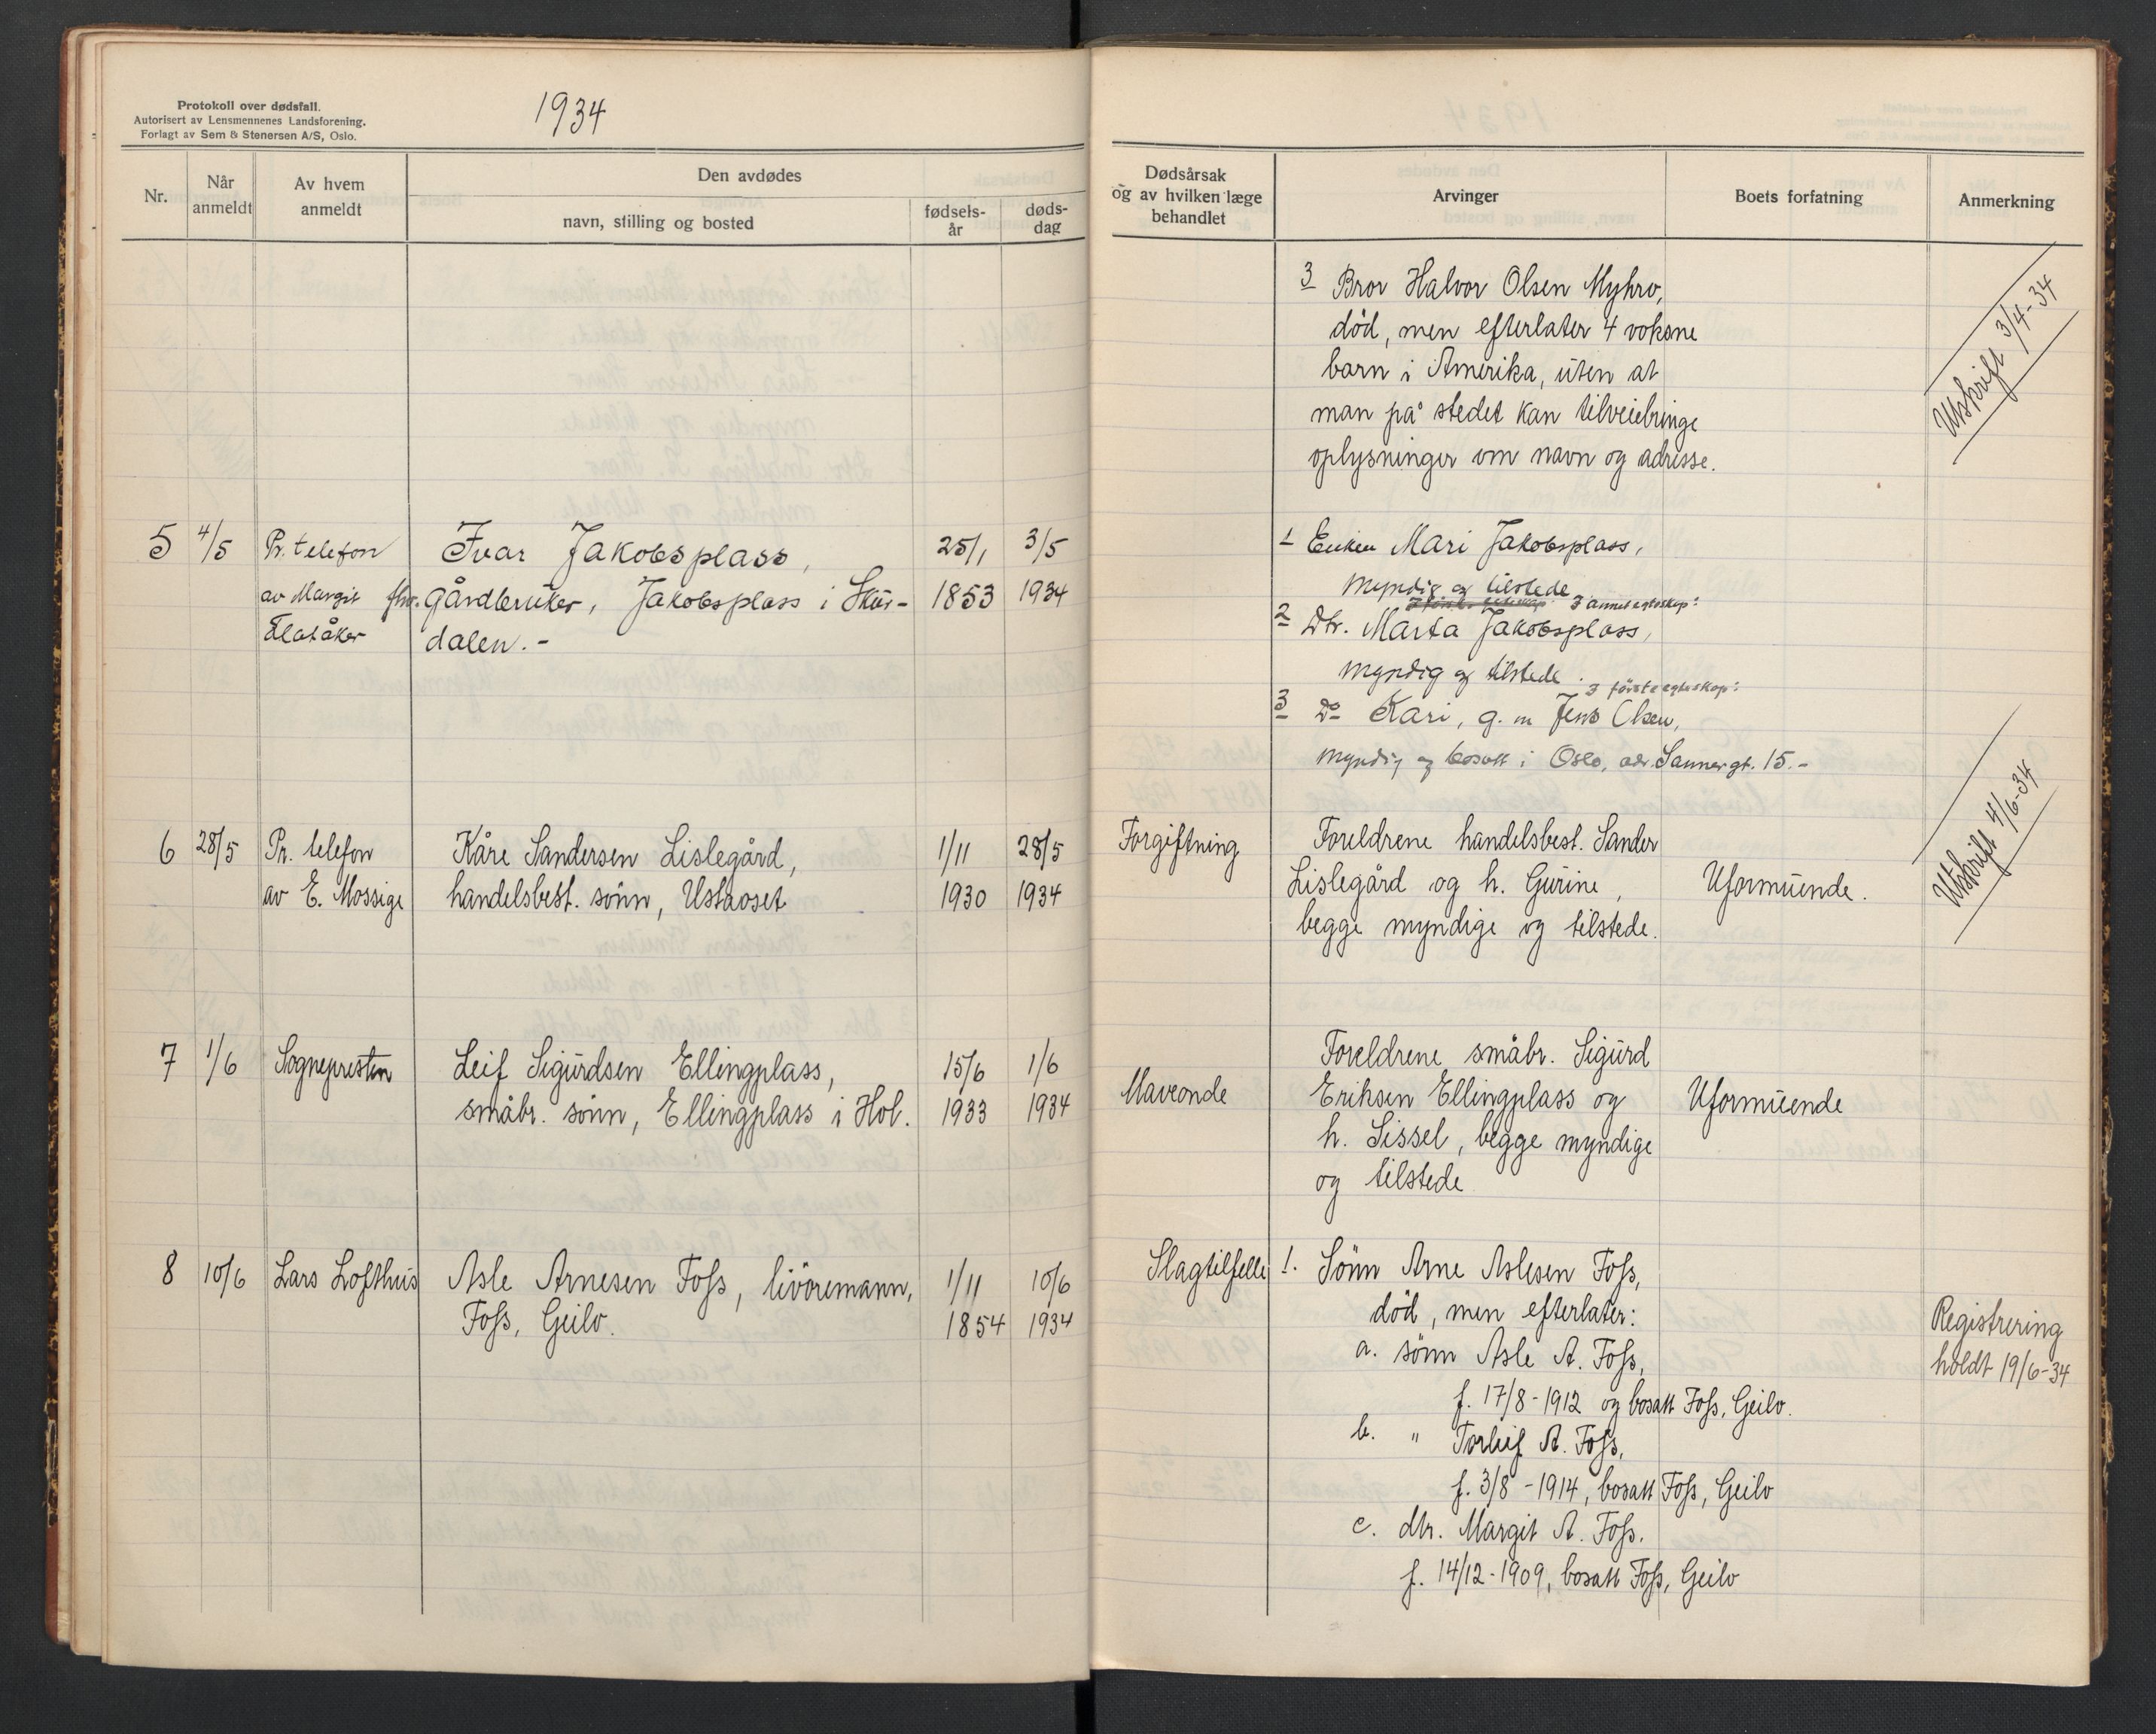 Protokoll over dødsfall.
Autorisert av Lensmennenes Landsforening.
Forlagt av Sem & Stenersen A/S, Oslo.
1934
Nr.
Når anmeldt
Av hvem anmeldt
Den avdødes
navn, stilling og bosted
fødsels-år
døds-dag
Dødsårsak og av hvilken læge behandlet
Arvinger
Boets forfatning
Anmerkning
3 Bror Halvor Olsen Myhro,
död, men efterlater 4 voksne
barn i Amerika, uten at
man på stedet kan tilveiebringe
oplysninger om navn og adresse.
Utskrift 3/4-34
5 4/5 Pr. telefon Ivar Jakobsplass, 25/1 3/5
av Margit fhv. gårdbruker, Jakobsplass i Skur- 1853 1934
Flatåker dalen.-
1 Enken Mari Jakobsplass,
myndig og tilstede
I annet egteskap:
2 Dtr. Marta Jakobsplass,
myndig og tilstede.
I förste egteskap:
3 Do Kari, g. m Jens Olsen,
myndig og bosatt i Oslo, adr. Sannergt. 15.-
Utskrift 4/6-34
6 28/5 Pr. telefon Kåre Sandersen Lislegård, 1/11 28/5 Forgiftning Foreldrene handelsbest. Sander
av E. Mossige handelsbest. sönn, Ustaoset 1930 1934 Lislegård og h. Gurine, Uformuende.
begge myndige og tilstede.
7 1/6 Sognepresten Leif Sigurdsen Ellingplass, 15/6 1/6 Foreldrene småbr. Sigurd
småbr. sönn, Ellingplass i Hol. 1933 1934 Maveonde Eriksen Ellingplass og Uformuende
h. Sissel, begge myndige
og tilstede
8 10/6 Lars Lofthus Asle Arnesen Foss, livöremann, 1/11 10/6 Slagtilfelle 1. Sönn Arne Aslesen Foss,
Foss, Geilo. 1854 1934 död, men efterlater:
Registrering
holdt 19/6-34
a. sönn Asle A. Foss,
f. 17/8-1912 og bosatt Foss, Geilo.
b. " Torleif A. Foss,
f. 3/8-1914, bosatt Foss, Geilo
c. dtr. Margit A. Foss.
f. 14/12-1909, bosatt Foss, Geilo